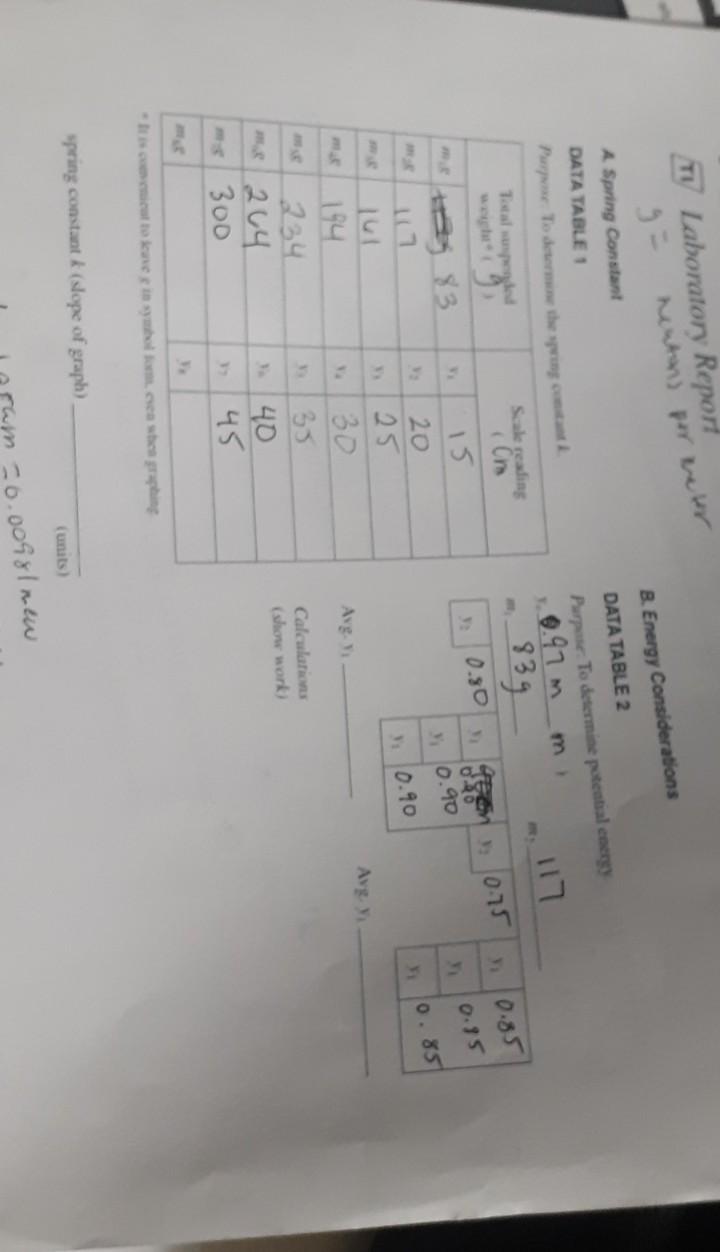 TI Laboratory Report
g = newtons per meter
A. Spring Constant
DATA TABLE 1
Purpose: To determine the spring constant k.
Total suspended weight* ( g ) Scale reading ( Cm
m₁g 83 y₁ 15
m₂g 117 y₂ 20
m₃g 161 y₃ 25
m₄g 194 y₄ 30
m₅g 234 y₅ 35
m₆g 264 y₆ 40
m₇g 300 y₇ 45
m₈g y₈
* It is convenient to leave g in symbol form, even when graphing.
spring constant k (slope of graph)
(units)
= 0.00981 new
B. Energy Considerations
DATA TABLE 2
Purpose: To determine potential energy
0.97 m m )
m₁ 83 g m₂ 117
y₂ 0.80 y₁ y₂ 0.75 y₁ 0.85
y₁ 0.90 y₁ 0.95
y₁ 0.90 y₁ 0.85
Avg. y₁ Avg. y₁
Calculations
(show work)